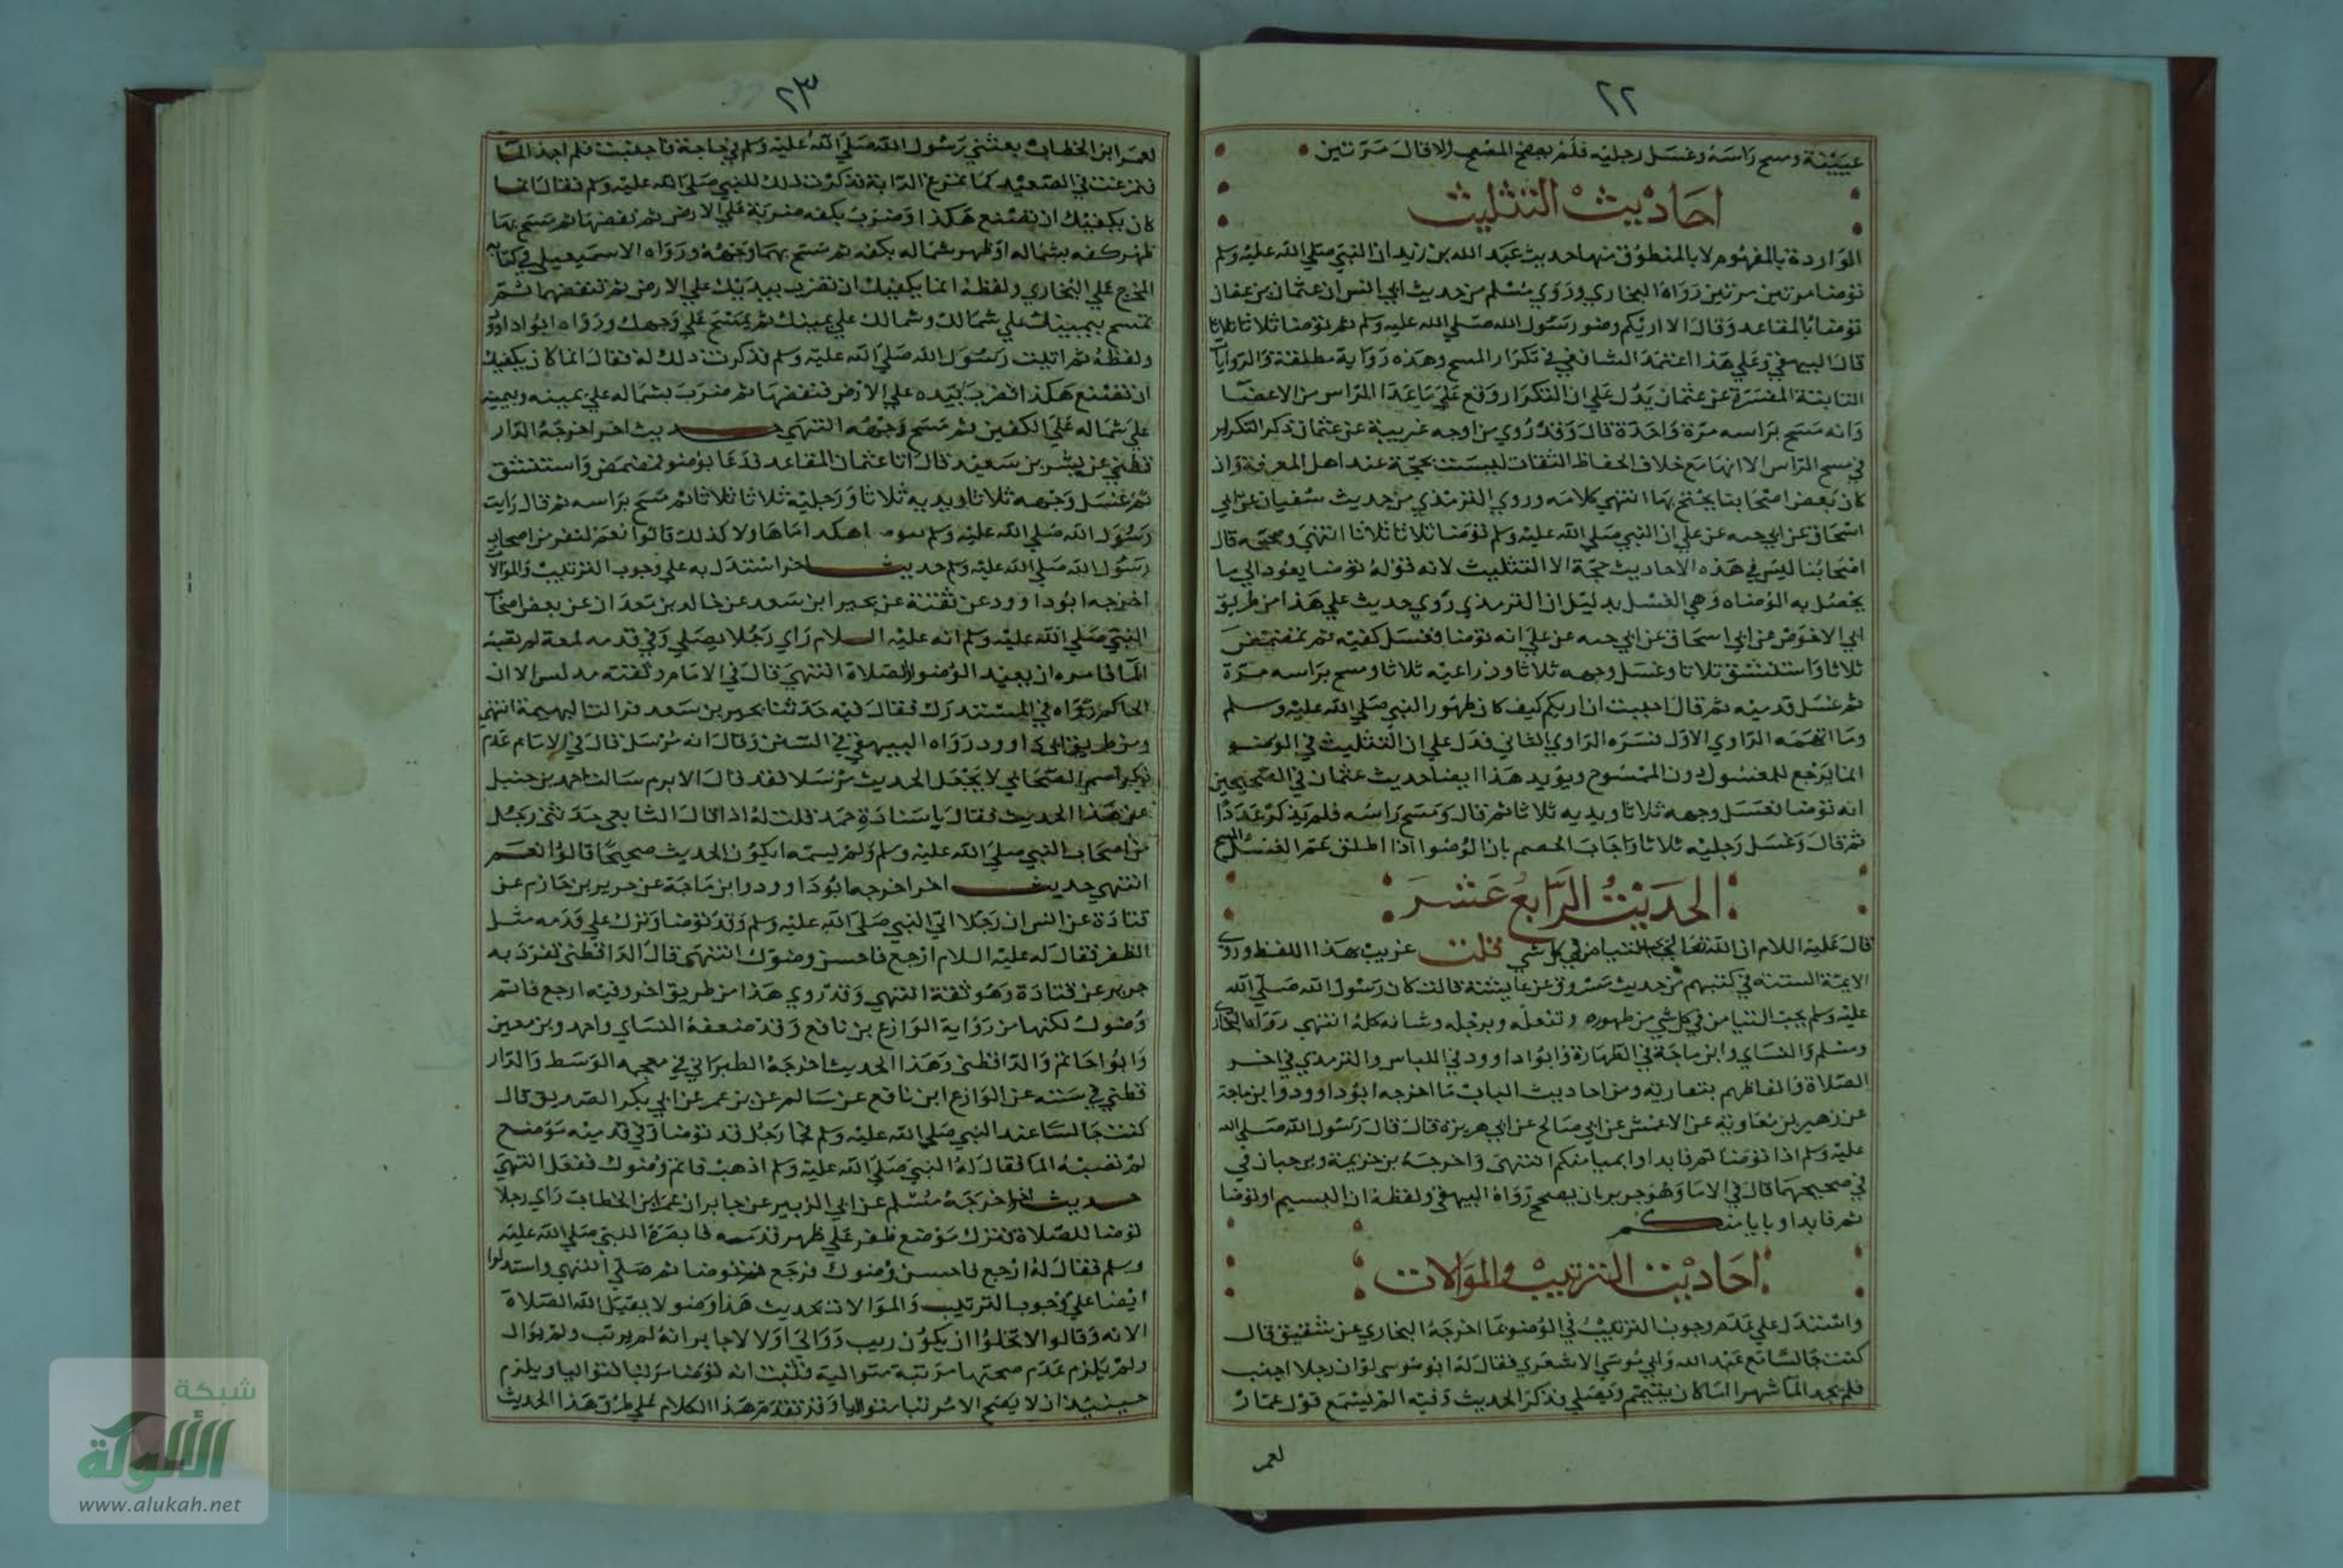 ٢٢
عيينة ومسح راسه وغسل رجليه فلم يصح المصحح الا قال مرتين
احاديث التثليث
الواردة بالمفهوم لا بالمنطوق منها حديث عبد الله بن زيد ان النبي صلي الله عليه وسلم
توضا مرتين مرتين رواه البخاري وروي مسلم من حديث ابي انس ان عثمان بن عفان
توضا بالمقاعد وقال الا اريكم وضو رسول الله صلي الله عليه وسلم ثم توضا ثلاثا ثلاثا
قال البيهقي وعلي هذا اعتمد الشافعي في تكرار المسح وهذه رواية مطلقة والروايات
الثابتة المفسرة عن عثمان يدل علي ان التكرار وقع علي ما عدا الراس من الاعضا
وانه مسح براسه مرة واحدة قال وقد روي من اوجه غريبة عن عثمان ذكر التكرار
في مسح الراس الا انها مع خلاف الحفاظ الثقات ليست بحجة عند اهل المعرفة وان
كان بعض اصحابنا يحتج بها انتهي كلامه وروي الترمذي من حديث سفيان عن ابي
اسحاق عن ابي حيه عن علي ان النبي صلي الله عليه وسلم توضا ثلاثا ثلاثا انتهي وصححه قال
اصحابنا ليس في هذه الاحاديث حجة الا التثليث لانه قوله توضا يعود الي ما
يحصل به الوضاه وهي الغسل بدليل ان الترمذي روي حديث علي هذا من طريق
ابي الاحوص عن ابي اسحاق عن ابي حيه عن علي انه توضا فغسل كفيه ثم تمضمض
ثلاثا واستنشق ثلاثا وغسل وجهه ثلاثا وذراعيه ثلاثا ومسح براسه مرة
ثم غسل قدميه ثم قال احببت ان اريكم كيف كان طهور النبي صلي الله عليه وسلم
وما ابهمه الراوي الاول فسره الراوي الثاني فدل علي ان التثليث في الوضو
انما يرجع للمغسول دون الممسوح ويويد هذا ايضا حديث عثمان في الصحيحين
انه توضا فغسل وجهه ثلاثا ويديه ثلاثا ثم قال ومسح راسه فلم يذكر عددا
ثم قال وغسل رجليه ثلاثا واجاب الخصم بان الوضوا اذا اطلق عم الغسل والمسح
الحديث الرابع عشر
قال عليه السلام ان الله تعالي يحب التيامن في كل شي قلت غريب بهذا اللفظ وروي
الايمة الستة في كتبهم من حديث مسروق عن عايشة قالت كان رسول الله صلي الله
عليه وسلم يحب التيامن في كل شي من طهوره وتنعله وترجله وشانه كله انتهي رواه البخاري
ومسلم والنساي وابن ماجة في الطهارة وابوا داوود في اللباس والترمذي في اخر
الصلاة والفاظهم بتقاربه ومن احاديث الباب ما اخرجه ابوا داوود وابن ماجة
عن زهير بن معاوية عن الاعمش عن ابي صالح عن ابي هريرة قال قال رسول الله صلي الله
عليه وسلم اذا توضاتم فابداوا بميامنكم انتهي واخرجه بن خزيمة وبن حبان في
في صحيحهما قال في الامام وهو جدير بان يصحح رواه البيهقي ولفظه اذا لبستم او توضا
ثم فابداو بايامنكم
احاديث الترتيب والموالات
واستدل علي عدم وجوب الترتيب في الوضو بما اخرجه البخاري عن شقيق قال
كنت جالسا مع عبد الله وابي موسي الاشعري فقال له ابو موسي لو ان رجلا اجنب
فلم يجد الما شهرا اما كان يتيمم ويصلي فذكر الحديث وفيه الم تسمع قول عمار
لعمر
٢٣
لعمر ابن الخطاب بعثني رسول الله صلي الله عليه وسلم في حاجة فاجنبت فلم اجد الما
فتمرغت في الصعيد كما تمرغ الدابة فذكرت ذلك للنبي صلي الله عليه وسلم فقال انما
كان يكفيك ان تصنع هكذا وضرب بكفه ضربة علي الارض ثم نفضها ثم مسح بها
ظهر كفه بشماله او ظهر شماله بكفه ثم مسح بهما وجهه ورواه الاسمعيلي في كتابه
المخرج علي البخاري ولفظه انما يكفيك ان تضرب بيديك علي الارض ثم تنفضهما ثم
تمسح بيمينك علي شمالك وشمالك علي يمينك ثم يمسح علي وجهك ورواه ابوا داوود
ولفظه ثم اتيت رسول الله صلي الله عليه وسلم فذكرت ذلك له فقال انما كان يكفيك
ان تصنع هكذا فضرب بيده علي الارض فنفضها ثم ضرب بشماله علي يمينه وبيمينه
علي شماله علي الكفين ثم مسح وجهه انتهي حديث اخر اخرجه الدار
قطني عن بشر بن سعيد قال اتا عثمان المقاعد فدعا بوضو فمضمض واستنشق
ثم غسل وجهه ثلاثا ويديه ثلاثا ورجليه ثلاثا ثلاثا ثم مسح براسه ثم قال رايت
رسول الله صلي الله عليه وسلم هكذا اما هاولا كذلك قالوا نعم لنفر من اصحاب
رسول الله صلي الله عليه وسلم حديث اخر استدل به علي وجوب الترتيب والموالات
اخرجه ابوداوود عن ثقتة عن بحير ابن سعد عن خالد بن معدان عن بعض اصحاب
النبي صلي الله عليه وسلم انه عليه السلام راي رجلا يصلي وفي قدمه لمعة لم تصبه
الما فامره ان يعيد الوضو والصلاة انتهي قال في الامام وثقته مدلس الا ان
الحاكم رواه في المستدرك فقال فيه حدثنا بحير بن سعد انتهي
ومن طريق ابي داوود رواه البيهقي في السنن وقال انه مرسل قال في الامام عدم
ذكر اسم الصحابي لا يجعل الحديث مرسلا فقد قال الاثرم سالت احمد بن حنبل
عن هذا الحديث فقال باسنادة جيد قلت له اذا قال التابعي حدثني رجل
من اصحاب النبي صلي الله عليه وسلم ولم يسمه ايكون الحديث صحيحا قال نعم
انتهي حديث اخر اخرجه ابوداوود وابن ماجة عن جرير بن حازم عن
قتادة عن انس ان رجلا اتي النبي صلي الله عليه وسلم وقد توضا وترك علي قدمه مثل
الظفر فقال له عليه السلام ارجع فاحسن وضوك انتهي قال الدارقطني تفرد به
جرير عن قتادة وهو ثقة انتهي وقد روي هذا من طريق اخر وفيه ارجع فاتم
وضوك لكنها من رواية الوازع بن نافع وقد ضعفه النساي واحمد وبن معين
وابوا حاتم والدارقطني وهذا الحديث اخرجه الطبراني في معجمه الوسط والدار
قطني في سننه عن الوازع ابن نافع عن سالم عن بن عمر عن ابي بكر الصديق قال
كنت جالسا عند النبي صلي الله عليه وسلم فجا رجل قد توضا وفي قدميه موضع
لم تصبه الما فقال له النبي صلي الله عليه وسلم اذهب فاتم وضوك ففعل انتهي
حديث اخر اخرجه مسلم عن ابي الزبير عن جابر ان عمر ابن الخطاب راي رجلا
توضا للصلاة فترك موضع ظفر علي ظهر قدمه فابصره النبي صلي الله عليه
وسلم فقال له ارجع فاحسن وضوك فرجع فتوضا ثم صلي انتهي واستدلوا
ايضا علي وجوب الترتيب والموالات بحديث هذا وضو لا يقبل الله الصلاة
الا به وقالوا لا تخلوا ان يكون رتب ووالي او لا لا جايز انه لم يرتب ولم يوال
ولم يلزم عدم صحتها مرتبة متوالية فثبت انه توضا مرتبا متواليا ويلزم
حينيذ ان لا يصح الا مرتبا متواليا وقد تقدم هذا الكلام علي طرق هذا الحديث
شبكة
الألوكة
www.alukah.net